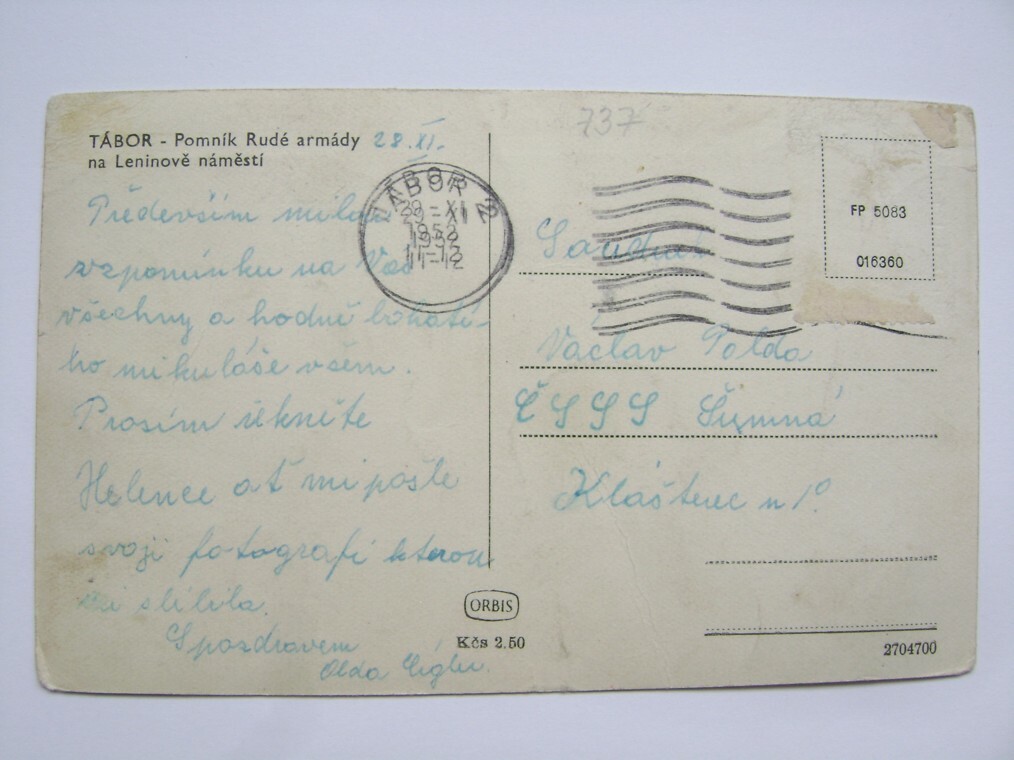 737
TÁBOR - Pomník Rudé armády 28. XI.
na Leninově náměstí
TÁBOR 2
29-XI
1952
11-12
FP 5083
016360
Především milou
vzpomínku na Vás
všechny a hodně bohaté-
ho mikuláše všem.
Prosím řekněte
Helence ať mi pošle
svoji fotografi kterou
mi slíbila.
S pozdravem
Olda
Soudruh
Václav Polda
ČSSS Šumná
Klášterec n/O
ORBIS
Kčs 2.50
2704700